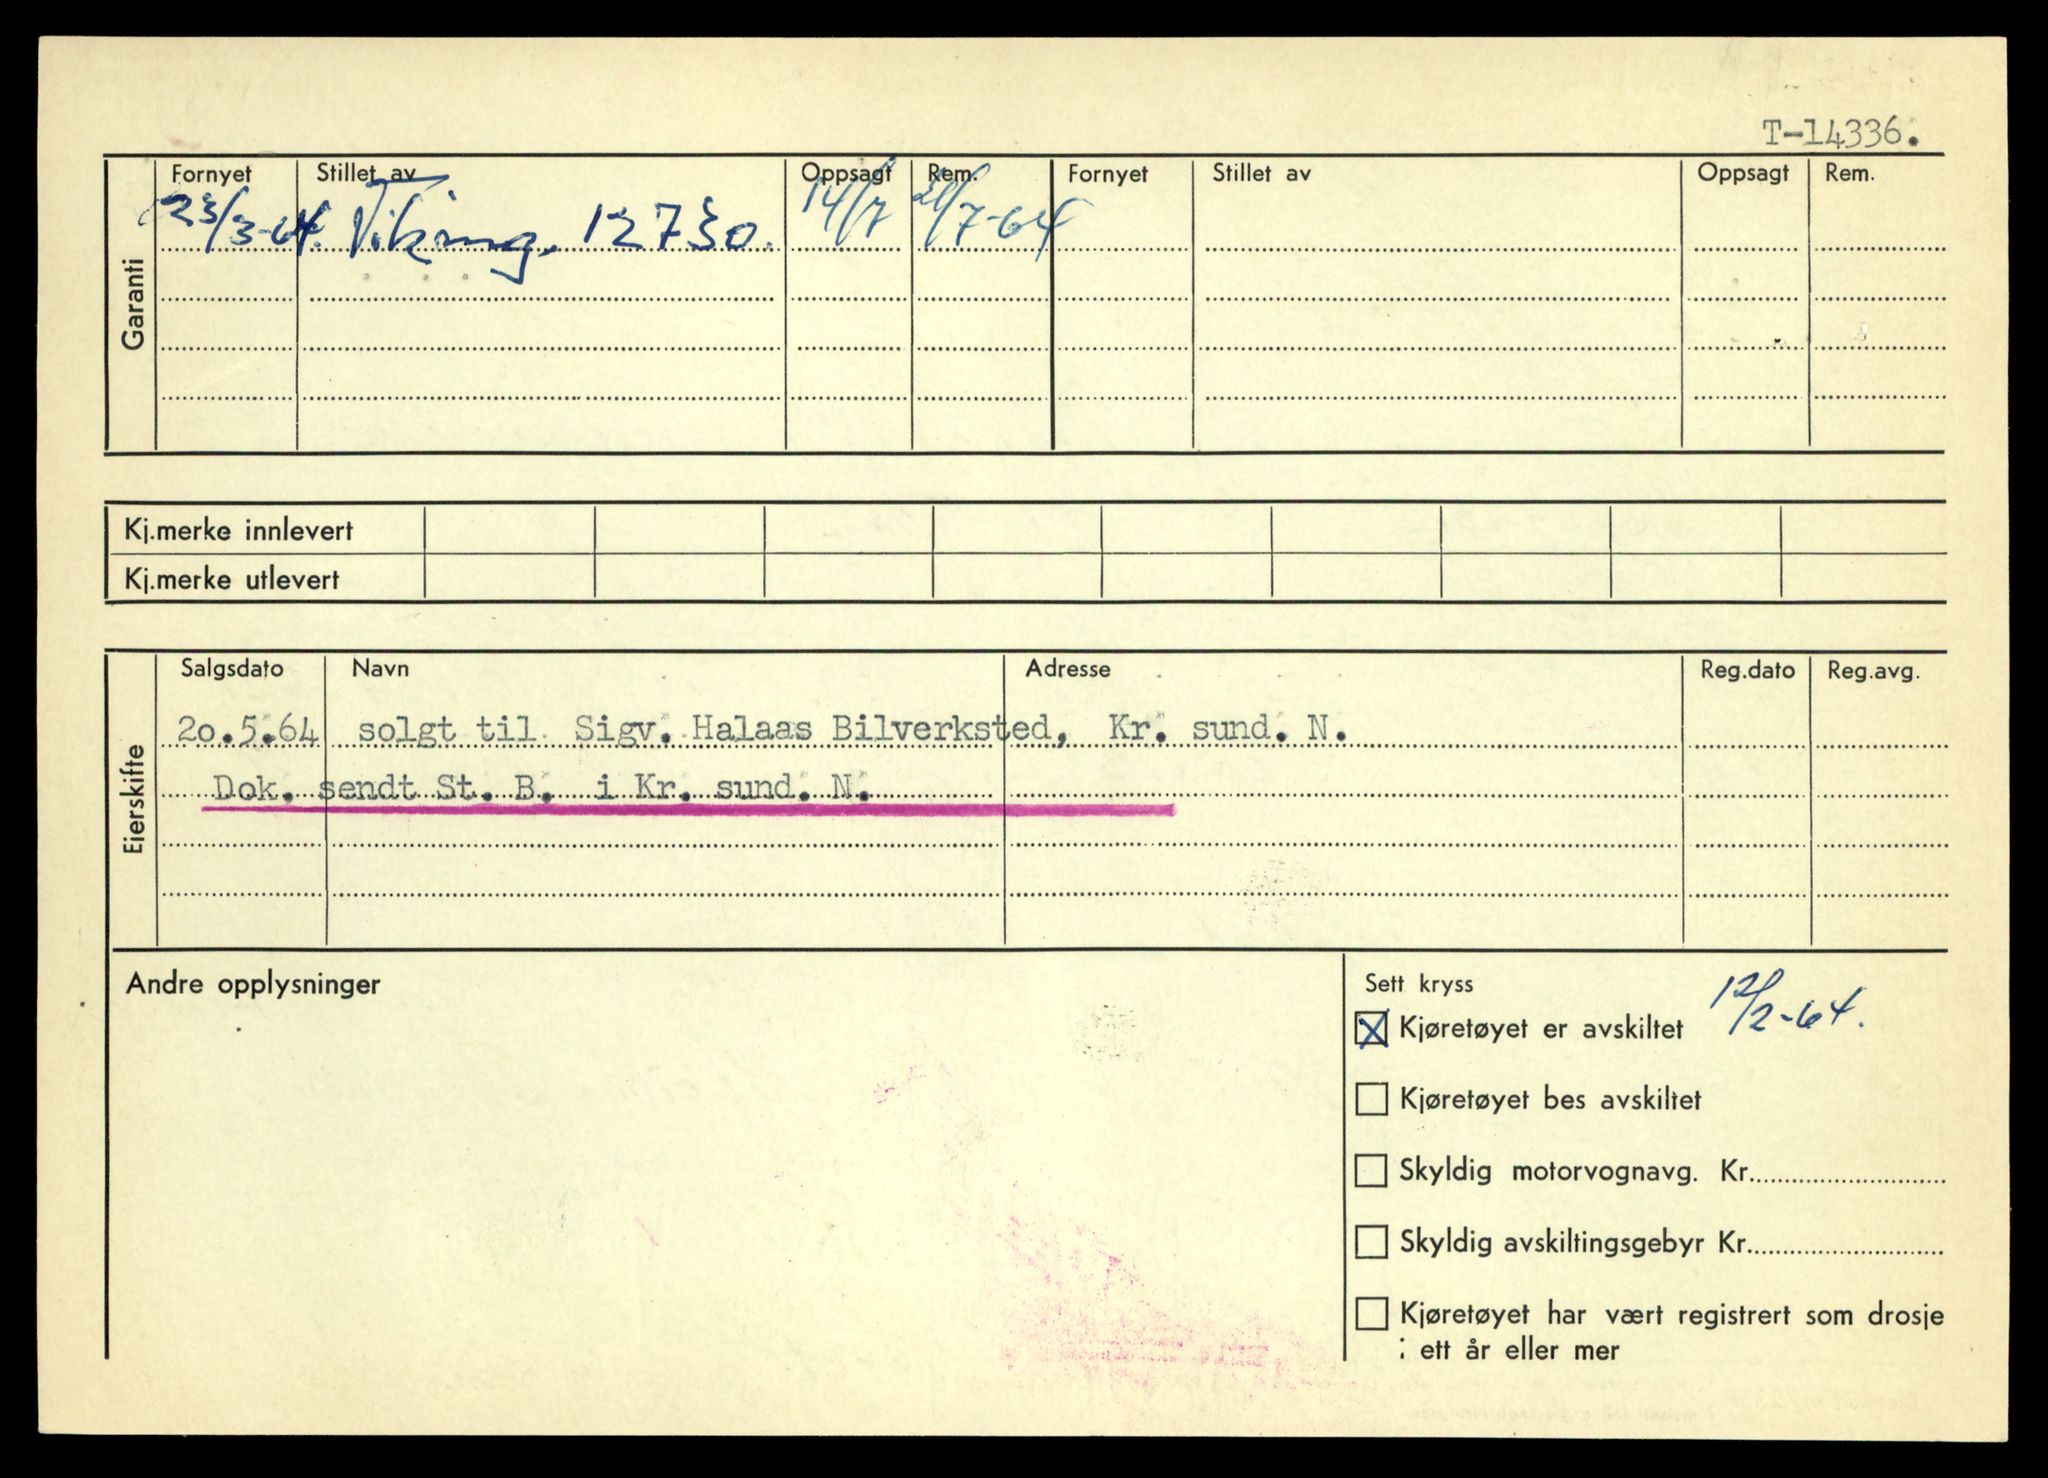 T-14336.
Garanti
Fornyet Stillet av Oppsagt Rem. Fornyet Stillet av Oppsagt Rem.
23/3-64. Viking. 12730. 14/7 /7-64
Kj.merke innlevert
Kj.merke utlevert
Eierskifte
Salgsdato Navn Adresse Reg.dato Reg.avg.
20.5.64 solgt til Sigv. Halaas Bilverksted, Kr. sund. N.
Dok. sendt St. B. i Kr. sund. N.
Andre opplysninger
Sett kryss
Kjøretøyet er avskiltet 12/2-64.
Kjøretøyet bes avskiltet
Skyldig motorvognavg. Kr.
Skyldig avskiltingsgebyr Kr.
Kjøretøyet har vært registrert som drosje
i ett år eller mer